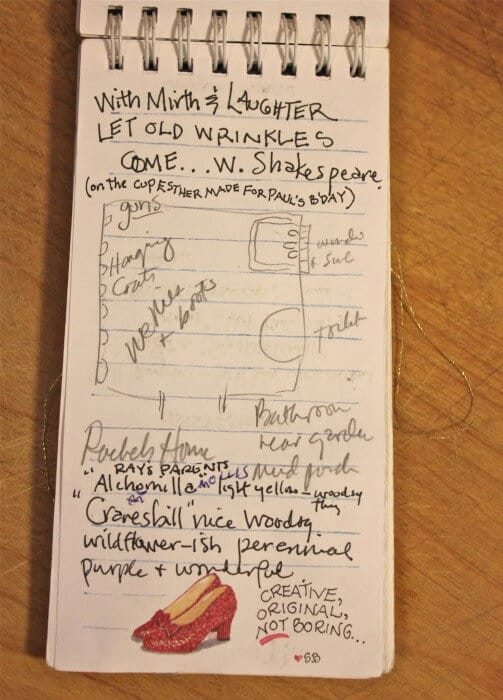 With Mirth & LAUGHTER
LET OLD WRINKLES
COME... W. Shakespeare.
(on the CUP ESTHER MADE FOR PAUL'S B'DAY)
guns
Hanging
Coats
Wellies
+ boots
toilet
Bathroom
near garden
mud porch
Rachels Home
RAY'S PARENTS
"Alchomilla" light yellow - woodsy
"Cranesbill" nice woodsy
wildflower-ish perennial
purple + wonderful
CREATIVE,
ORIGINAL,
NOT BORING...
♥SB